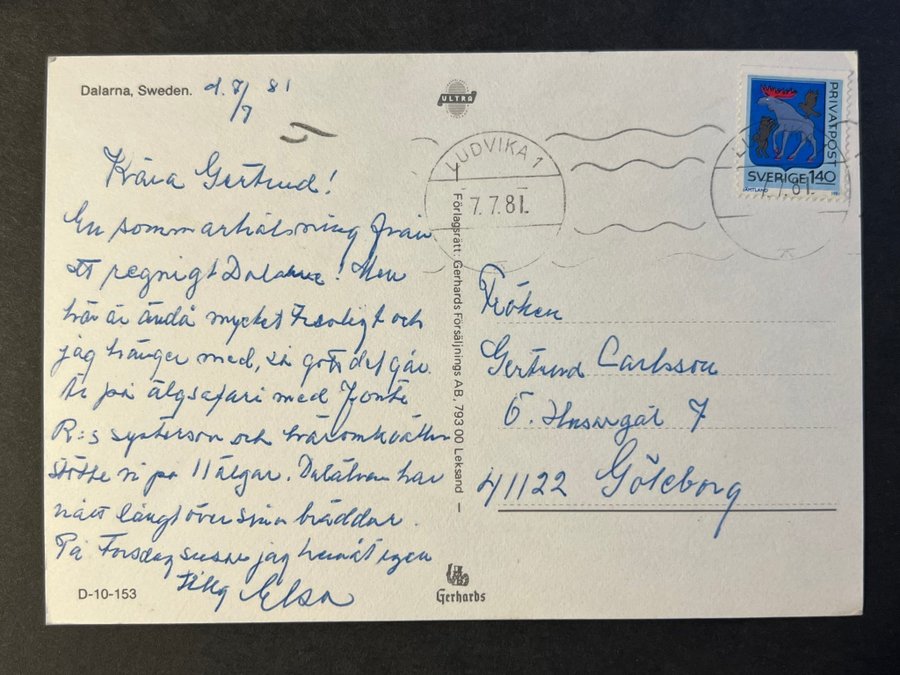 Dalarna, Sweden. d. 7/7 81
ULTRA
Kära Gertrud!
En sommarhälsning från
ett regnigt Dalarne! Men
här är ändå mycket trevligt och
jag hänger med, så gott det går.
Är på älgsafari med
R:s systerson och häromkvällen
stötte vi på 11 älgar. Dalälven har
nått långt över sina bräddar.
På Torsdag jag hemåt igen
Elsa
D-10-153
Förlagsrätt: Gerhards Försäljnings AB, 793 00 Leksand
Gerhards
LUDVIKA 1
7.7.81
PRIVATPOST
SVERIGE 140
JÄMTLAND
Fröken
Gertrud Carlsson
Ö. Husargat 7
41122 Göteborg